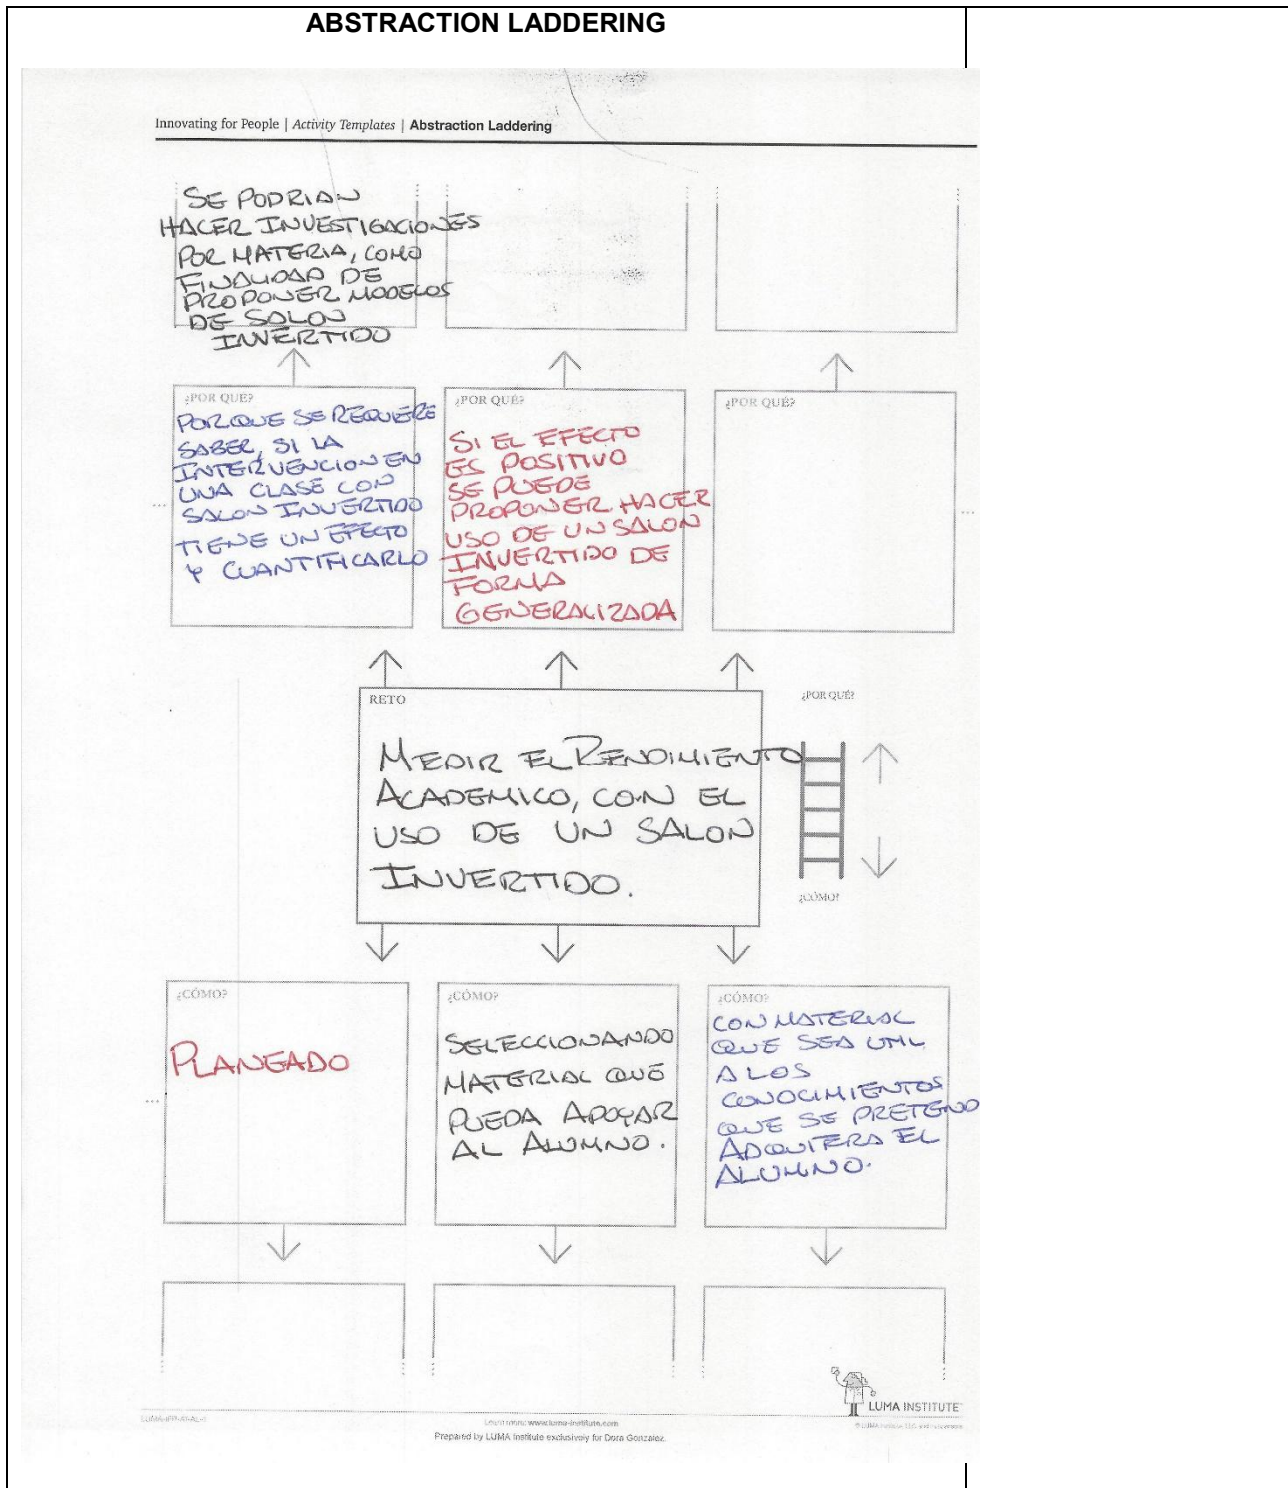 ABSTRACTION LADDERING
Innovating for People | Activity Templates | Abstraction Laddering
SE PODRIAN
HACER INVESTIGACIONES
POR MATERIA, COMO
FINALIDAD DE
PROPONER MODELOS
DE SALON
INVERTIDO
¿POR QUÉ?
PORQUE SE REQUIERE
SABER, SI LA
INTERVENCION EN
UNA CLASE CON
SALON INVERTIDO
TIENE UN EFECTO
Y CUANTIFICARLO
¿POR QUÉ?
SI EL EFECTO
ES POSITIVO
SE PUEDE
PROPONER HACER
USO DE UN SALON
INVERTIDO DE
FORMA
GENERALIZADA
¿POR QUÉ?
RETO
MEDIR EL RENDIMIENTO
ACADEMICO, CON EL
USO DE UN SALON
INVERTIDO.
¿POR QUÉ?
¿CÓMO?
¿CÓMO?
PLANEADO
¿CÓMO?
SELECCIONANDO
MATERIAL QUE
PUEDA APOYAR
AL ALUMNO.
¿CÓMO?
CON MATERIAL
QUE SEA UTIL
A LOS
CONOCIMIENTOS
QUE SE PRETEND
ADQUIERA EL
ALUMNO.
LUMA INSTITUTE
www.luma-institute.com
Prepared by LUMA Institute exclusively for Dora Gonzalez.